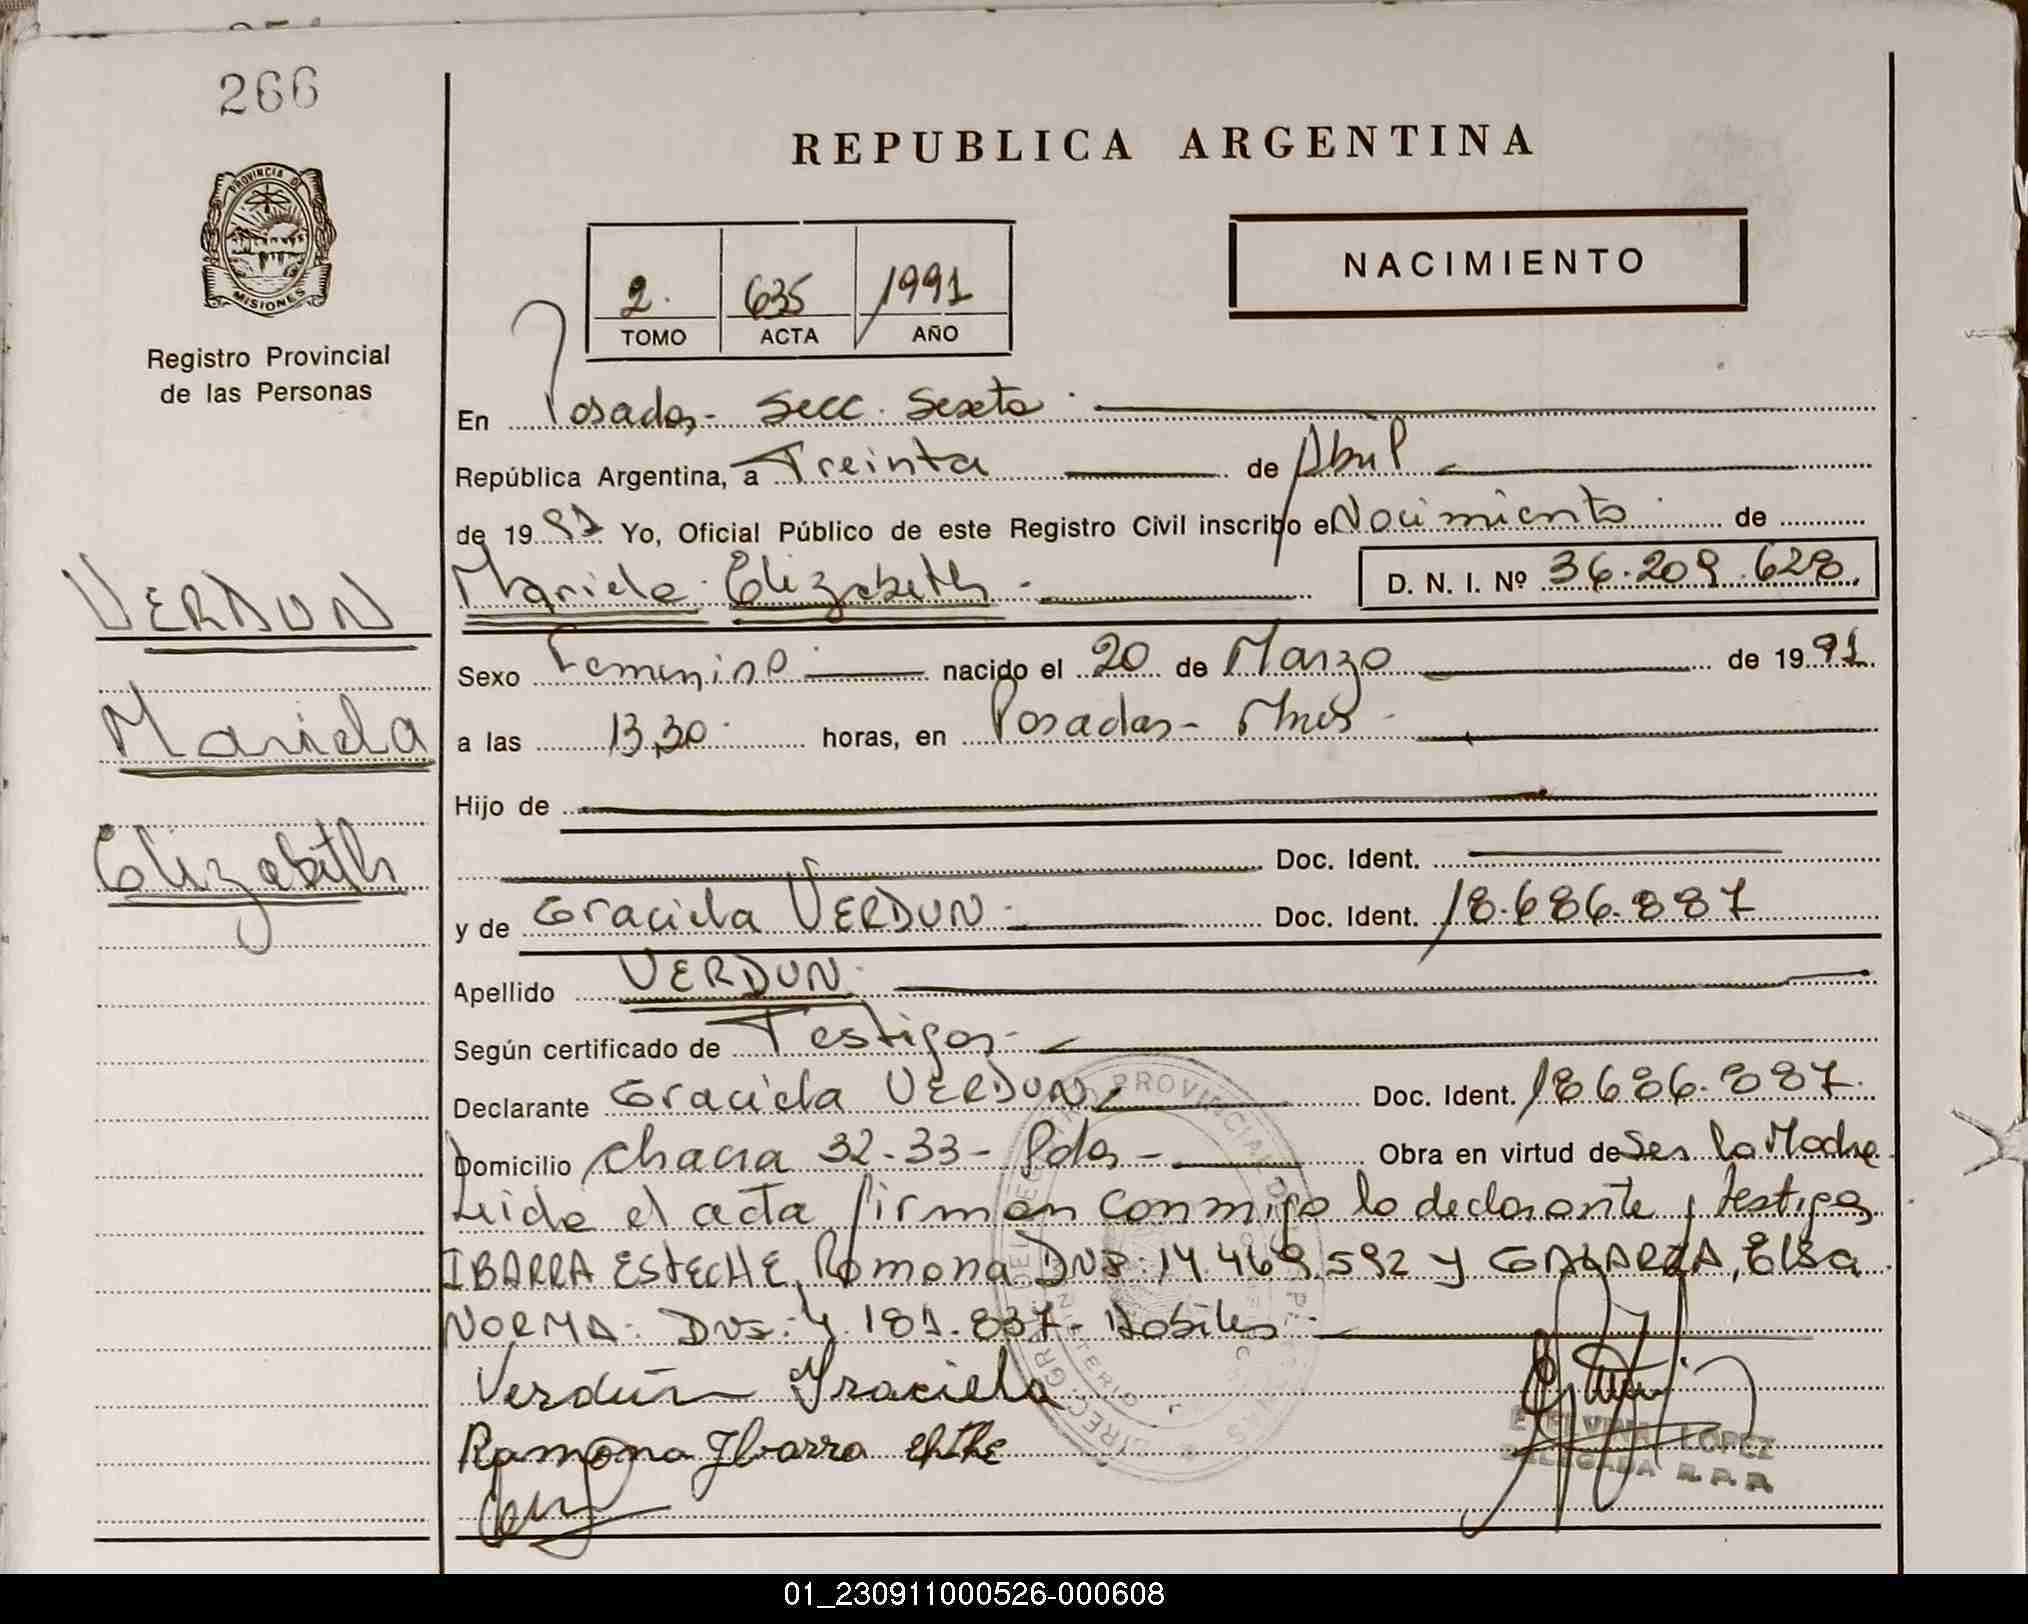 266
REPUBLICA ARGENTINA
PROVINCIA DE
MISIONES
NACIMIENTO
2. 635 1991
TOMO ACTA AÑO
Registro Provincial
de las Personas
En Posadas - Secc. Sexta
República Argentina, a Treinta de Abril
de 1991 Yo, Oficial Público de este Registro Civil inscribo el Nacimiento de
VERDUN
Mariela Elizabeth D. N. I. Nº 36.209.628.
Sexo Femenino nacido el 20 de Marzo de 1991
Mariela
a las 13,30 horas, en Posadas - Mnes
Hijo de
Elizabeth
Doc. Ident.
y de Graciela VERDUN Doc. Ident. 18.686.887
Apellido VERDUN
Según certificado de Testigos
Declarante Graciela VERDUN Doc. Ident. 18686.887.
Domicilio Chacra 32-33- Pdas - Obra en virtud de Ser la Madre
Leida el acta firman conmigo la declarante y testigos
IBARRA ESTECHE, Ramona DNI: 14.469.592 y GALARZA, Elsa
NORMA: DNI: 4.181.837- Habiles
Verdún Graciela
Ramona Ibarra
LOPEZ
DELEGADA R.P.P.
01_230911000526-000608